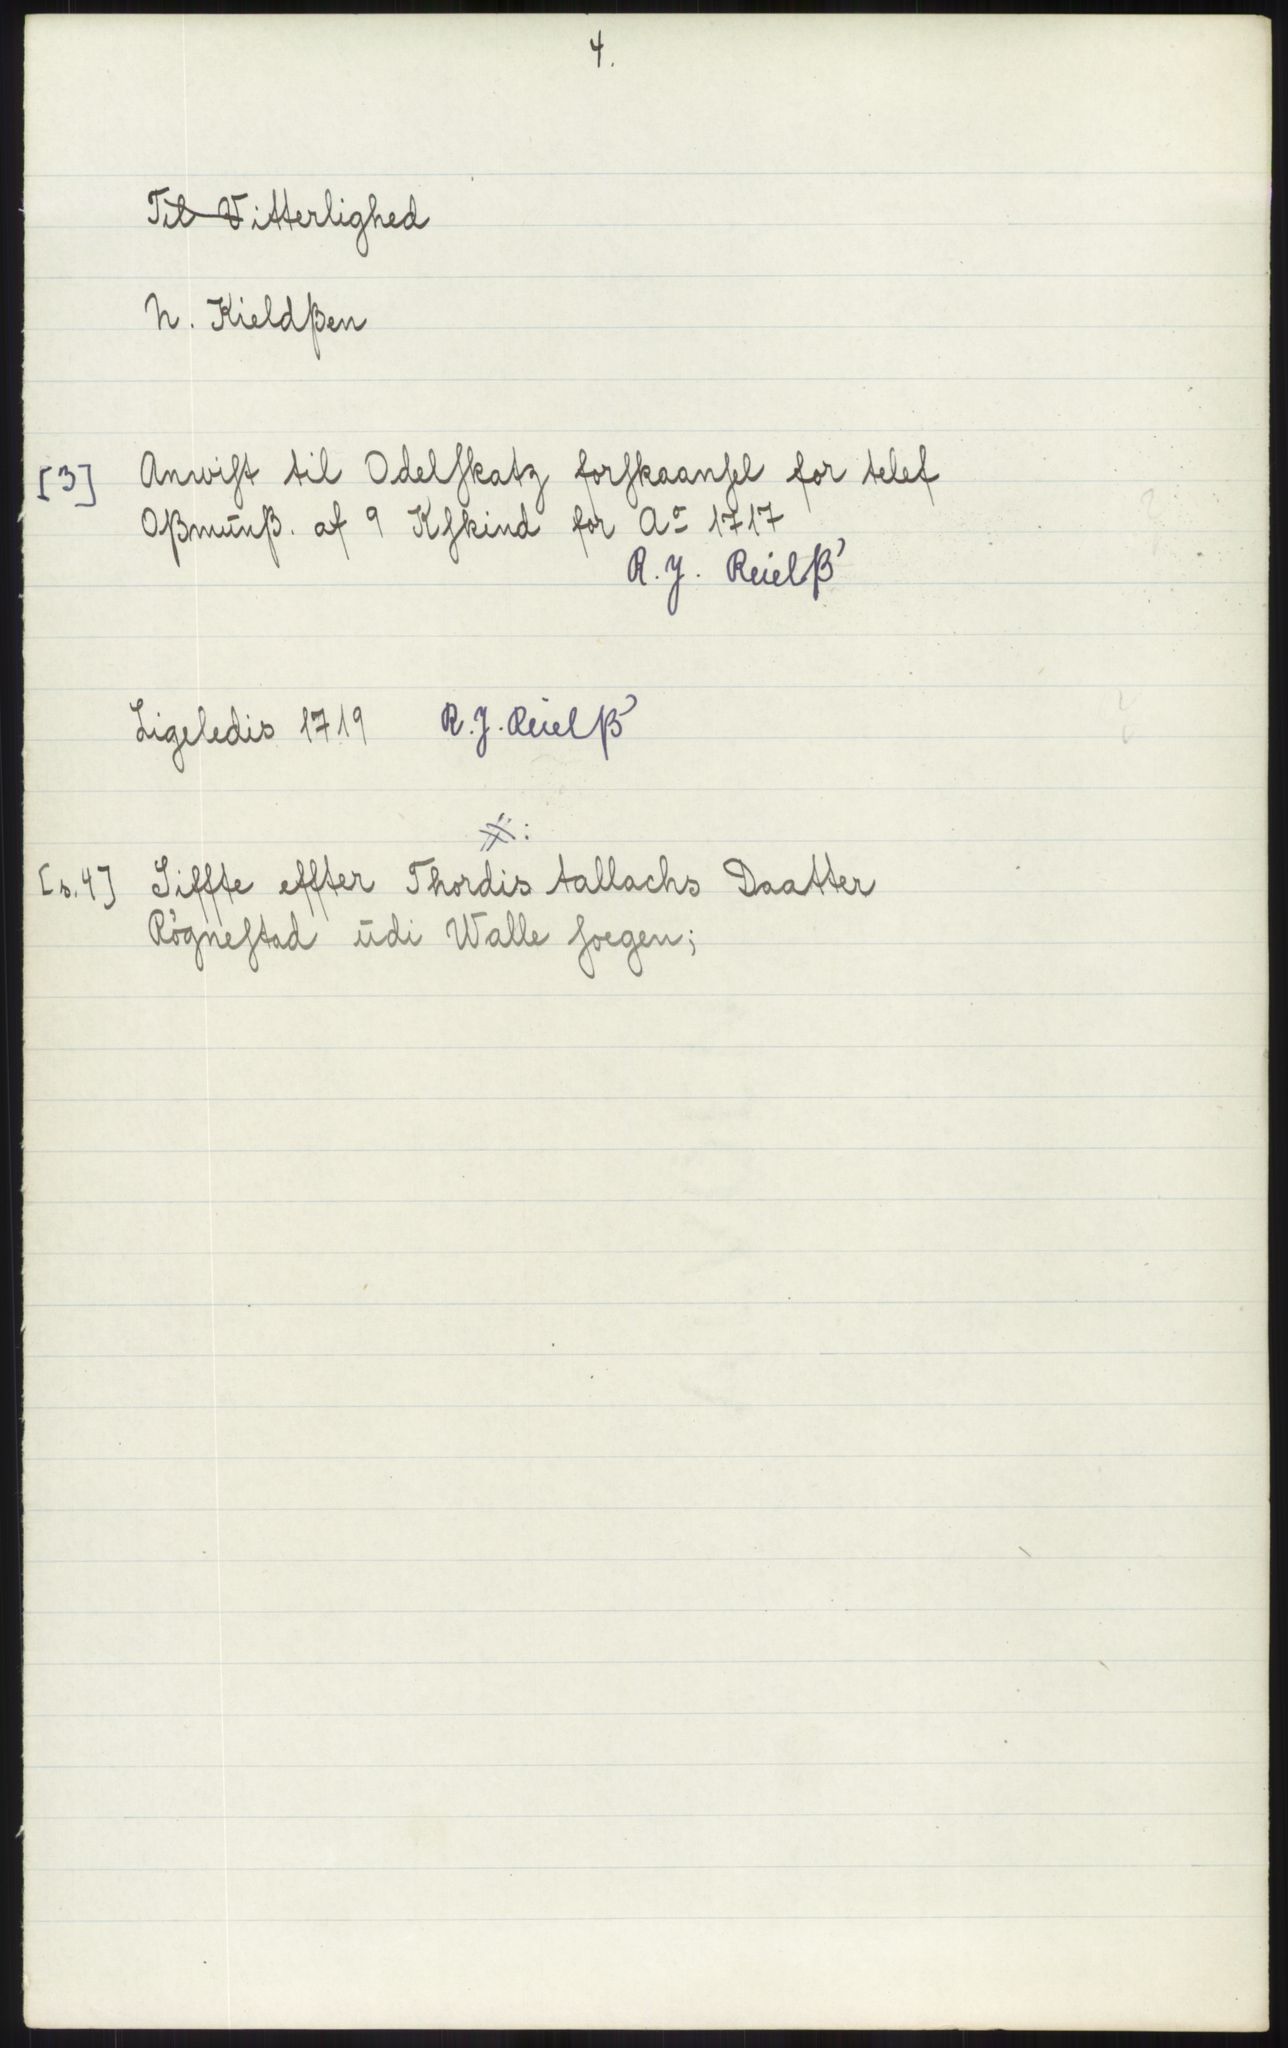 4.
Til Vitterlighed
N. Kieldßen
[3] Anwist til Odelskatz forskaansel for telef
Oßmunß. af 9 Kskind for Ao 1717
R. J. Reielß
Ligeledis 1719 R. J. Reielß
[s. 4] Siffte effter Thordis tallachs Daatter
Røgnestad ūdi Walle soegen;